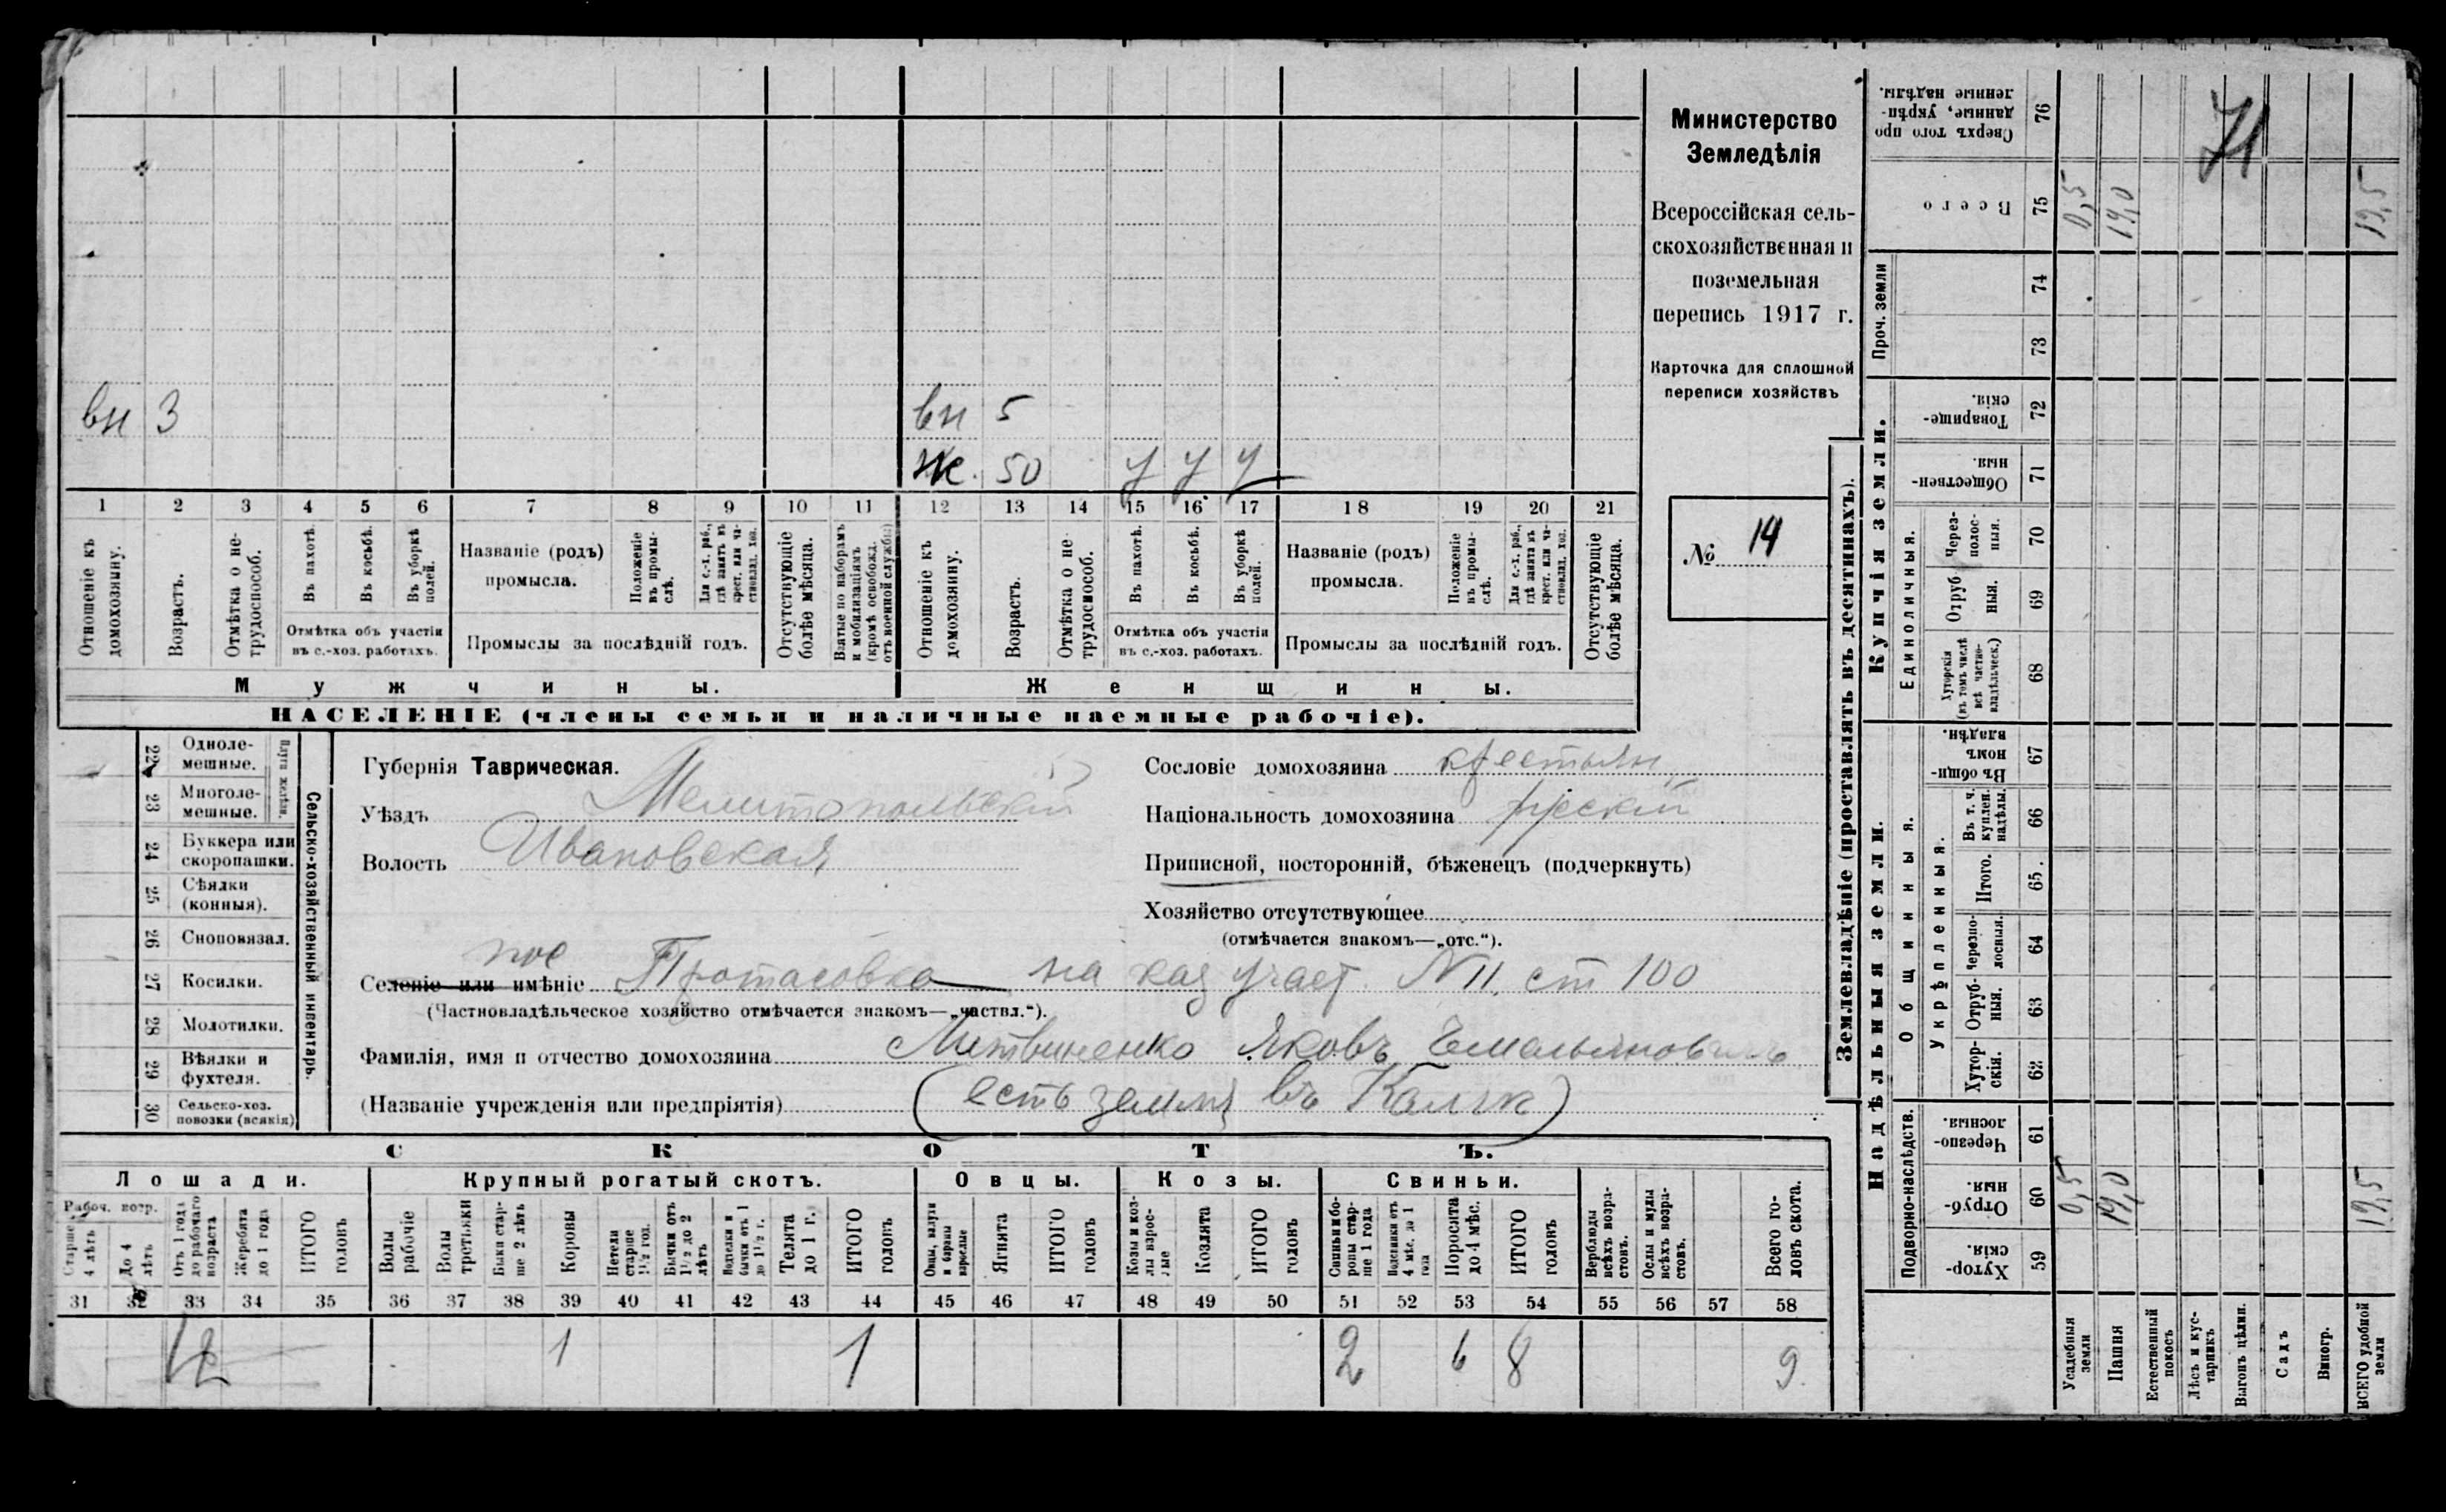 вн 3 вн 5
ж. 50 у у у
1 2 3 4 5 6 7 8 9 10 11 12 13 14 15 16 17 18 19 20 21
Отношеніе къ домохозяину.
Возрастъ.
Отмѣтка о нетрудоспособ.
Въ пахотѣ.
Въ косьбѣ.
Въ уборкѣ полей.
Отмѣтка объ участіи
въ с.-хоз. работахъ.
Названіе (родъ)
промысла.
Положеніе въ промыслѣ.
Для с.-х. раб., гдѣ занятъ въ крест. или частновлад. хоз.
Промыслы за послѣдній годъ.
Отсутствующіе болѣе мѣсяца.
Взятые по наборамъ и мобилизаціямъ (кромѣ освобожд. отъ военной службы)
Отношеніе къ домохозяину.
Возрастъ.
Отмѣтка о нетрудоспособ.
Въ пахотѣ.
Въ косьбѣ.
Въ уборкѣ полей.
Отмѣтка объ участіи
въ с.-хоз. работахъ.
Названіе (родъ)
промысла.
Положеніе въ промыслѣ.
Для с.-х. раб., гдѣ занята въ крест. или частновлад. хоз.
Промыслы за послѣдній годъ.
Отсутствующіе болѣе мѣсяца.
Мужчины. Женщины.
НАСЕЛЕНІЕ (члены семьи и наличные наемные рабочіе).
Министерство
Земледѣлія
Всероссійская сель-
скохозяйственная и
поземельная
перепись 1917 г.
Карточка для сплошной
переписи хозяйствъ
№ 14
Сельско-хозяйственный инвентарь.
Плуги желѣзн.
22 Одноле-
мешные.
23 Многоле-
мешные.
24 Буккера или
скоропашки.
25 Сѣялки
(конныя).
26 Сноповязал.
27 Косилки.
28 Молотилки.
29 Вѣялки и
фухтеля.
30 Сельско-хоз.
повозки (всякія)
Губернія Таврическая.
Уѣздъ Мелитопольскій
Волость Ивановская
Сословіе домохозяина крестьян.
Національность домохозяина русскій
Приписной, посторонній, бѣженецъ (подчеркнуть)
Хозяйство отсутствующее
(отмѣчается знакомъ—„отс.“).
пос
Селеніе или имѣніе Протасовка на каз участ. N II, ст 100
(Частновладѣльческое хозяйство отмѣчается знакомъ—„частвл.“).
Фамилія, имя и отчество домохозяина Литвиненко Яковъ Емельяновичъ
(Названіе учрежденія или предпріятія) (есть земля въ)
СКОТЪ.
Лошади. Крупный рогатый скотъ. Овцы. Козы. Свиньи.
Рабоч. возр.
Старше 4 лѣтъ
До 4 лѣтъ
Отъ 1 года до рабочаго возраста
Жеребята до 1 года
ИТОГО головъ
Волы рабочіе
Волы третьяки
Быки старше 2 лѣтъ
Коровы
Нетели старше 1½ год.
Бычки отъ 1½ до 2 лѣтъ
Телята до 1 г.
ИТОГО головъ
Овцы, валухи и бараны взрослые
Ягнята
ИТОГО головъ
Козы и козлы взрослые
Козлята
ИТОГО головъ
Свиньи и боровы старше 1 года
Подсвинки отъ 4 мѣс. до 1 года
Поросята до 4 мѣс.
ИТОГО головъ
Верблюды всѣхъ возрастовъ.
Ослы и мулы всѣхъ возрастовъ.
Всего головъ скота.
31 32 33 34 35 36 37 38 39 40 41 42 43 44 45 46 47 48 49 50 51 52 53 54 55 56 57 58
1 1 2 6 8 9
Землевладѣніе (проставлять въ десятинахъ).
Сверхъ того проданные, укрѣпленные надѣлы. 76
71
Всего 75 0,5 19,0 19,5
Проч. земли 74 73
Купчія земли.
Товарищескія. 72
Общественныя. 71
Единоличныя.
Черезполосныя. 70
Отрубныя. 69
Хуторскія (въ томъ числѣ всѣ частновладѣльческ.) 68
Надѣльныя земли.
Общинныя.
Въ общинномъ владѣн. 67
Укрѣпленныя.
Въ т. ч. куплен. надѣлы. 66
Итого. 65.
Черезполосныя. 64
Отрубныя. 63
Хуторскія. 62
Подворно-наслѣдств.
Черезполосныя. 61
Отрубныя. 60 0,5 19,0 19,5
Хуторскія. 59
Усадебныя земли
Пашня
Естественный покосъ
Лѣсъ и кустарникъ
Выгонъ цѣлин.
Садъ
Виногр.
ВСЕГО удобной земли